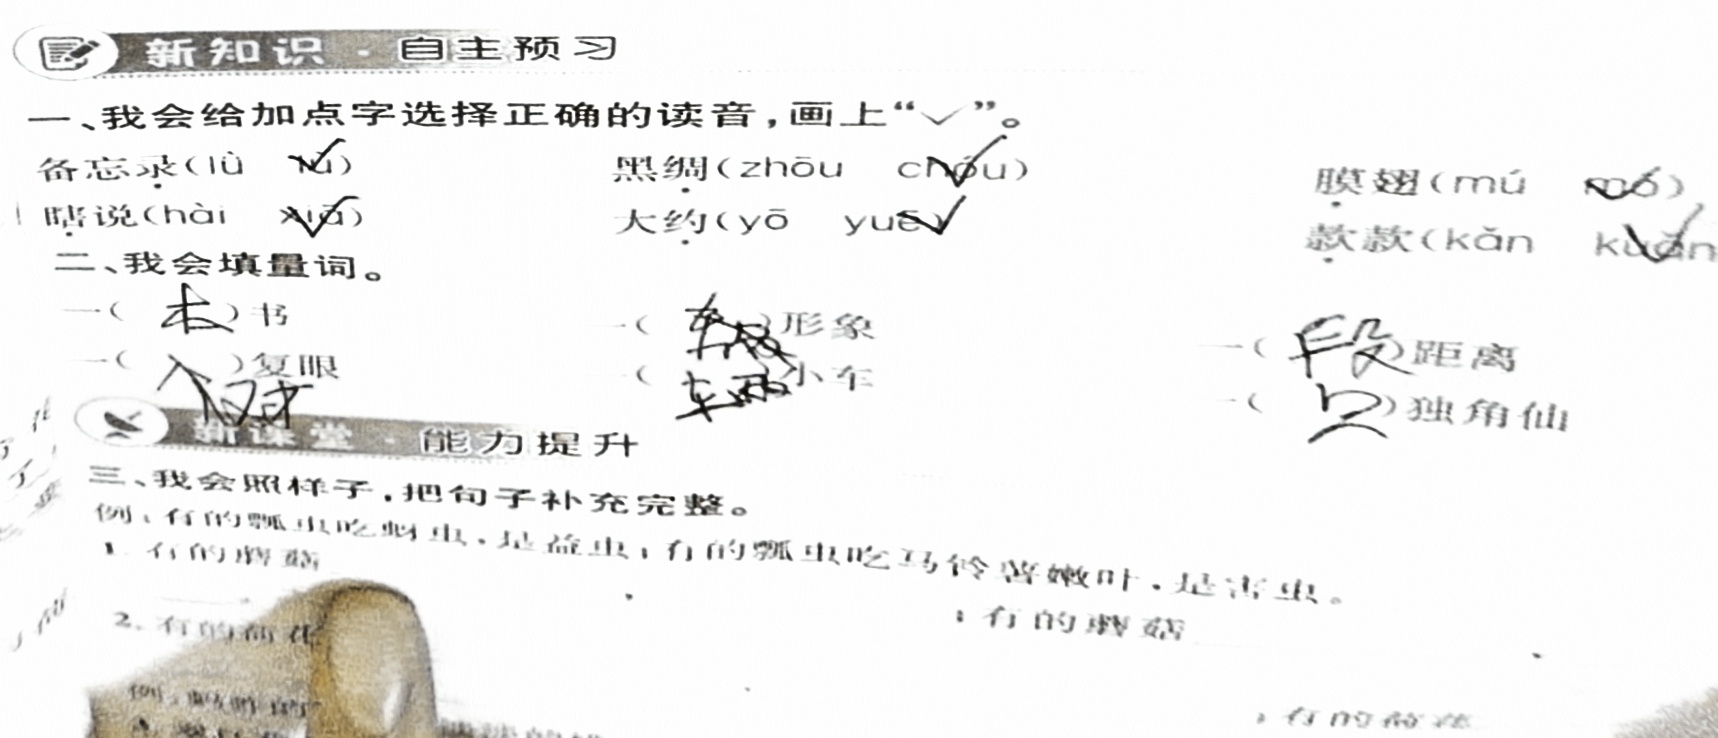 新知识·自主预习
一、我会给加点字选择正确的读音,画上“✓”。
备忘录(lù lǜ) 黑绸(zhōu chóu) 膜翅(mú mó)
瞎说(hài xiā) 大约(yō yuē) 款款(kǎn kuǎn
二、我会填量词。
一(本)书 一( )形象 一(段)距离
一(对)复眼 一(辆)小车 一(只)独角仙
新课堂·能力提升
三、我会照样子,把句子补充完整。
例:有的瓢虫吃蚜虫,是益虫;有的瓢虫吃马铃薯嫩叶,是害虫。
1. 有的蘑菇
;有的蘑菇
2. 有的荷花
;有的荷花